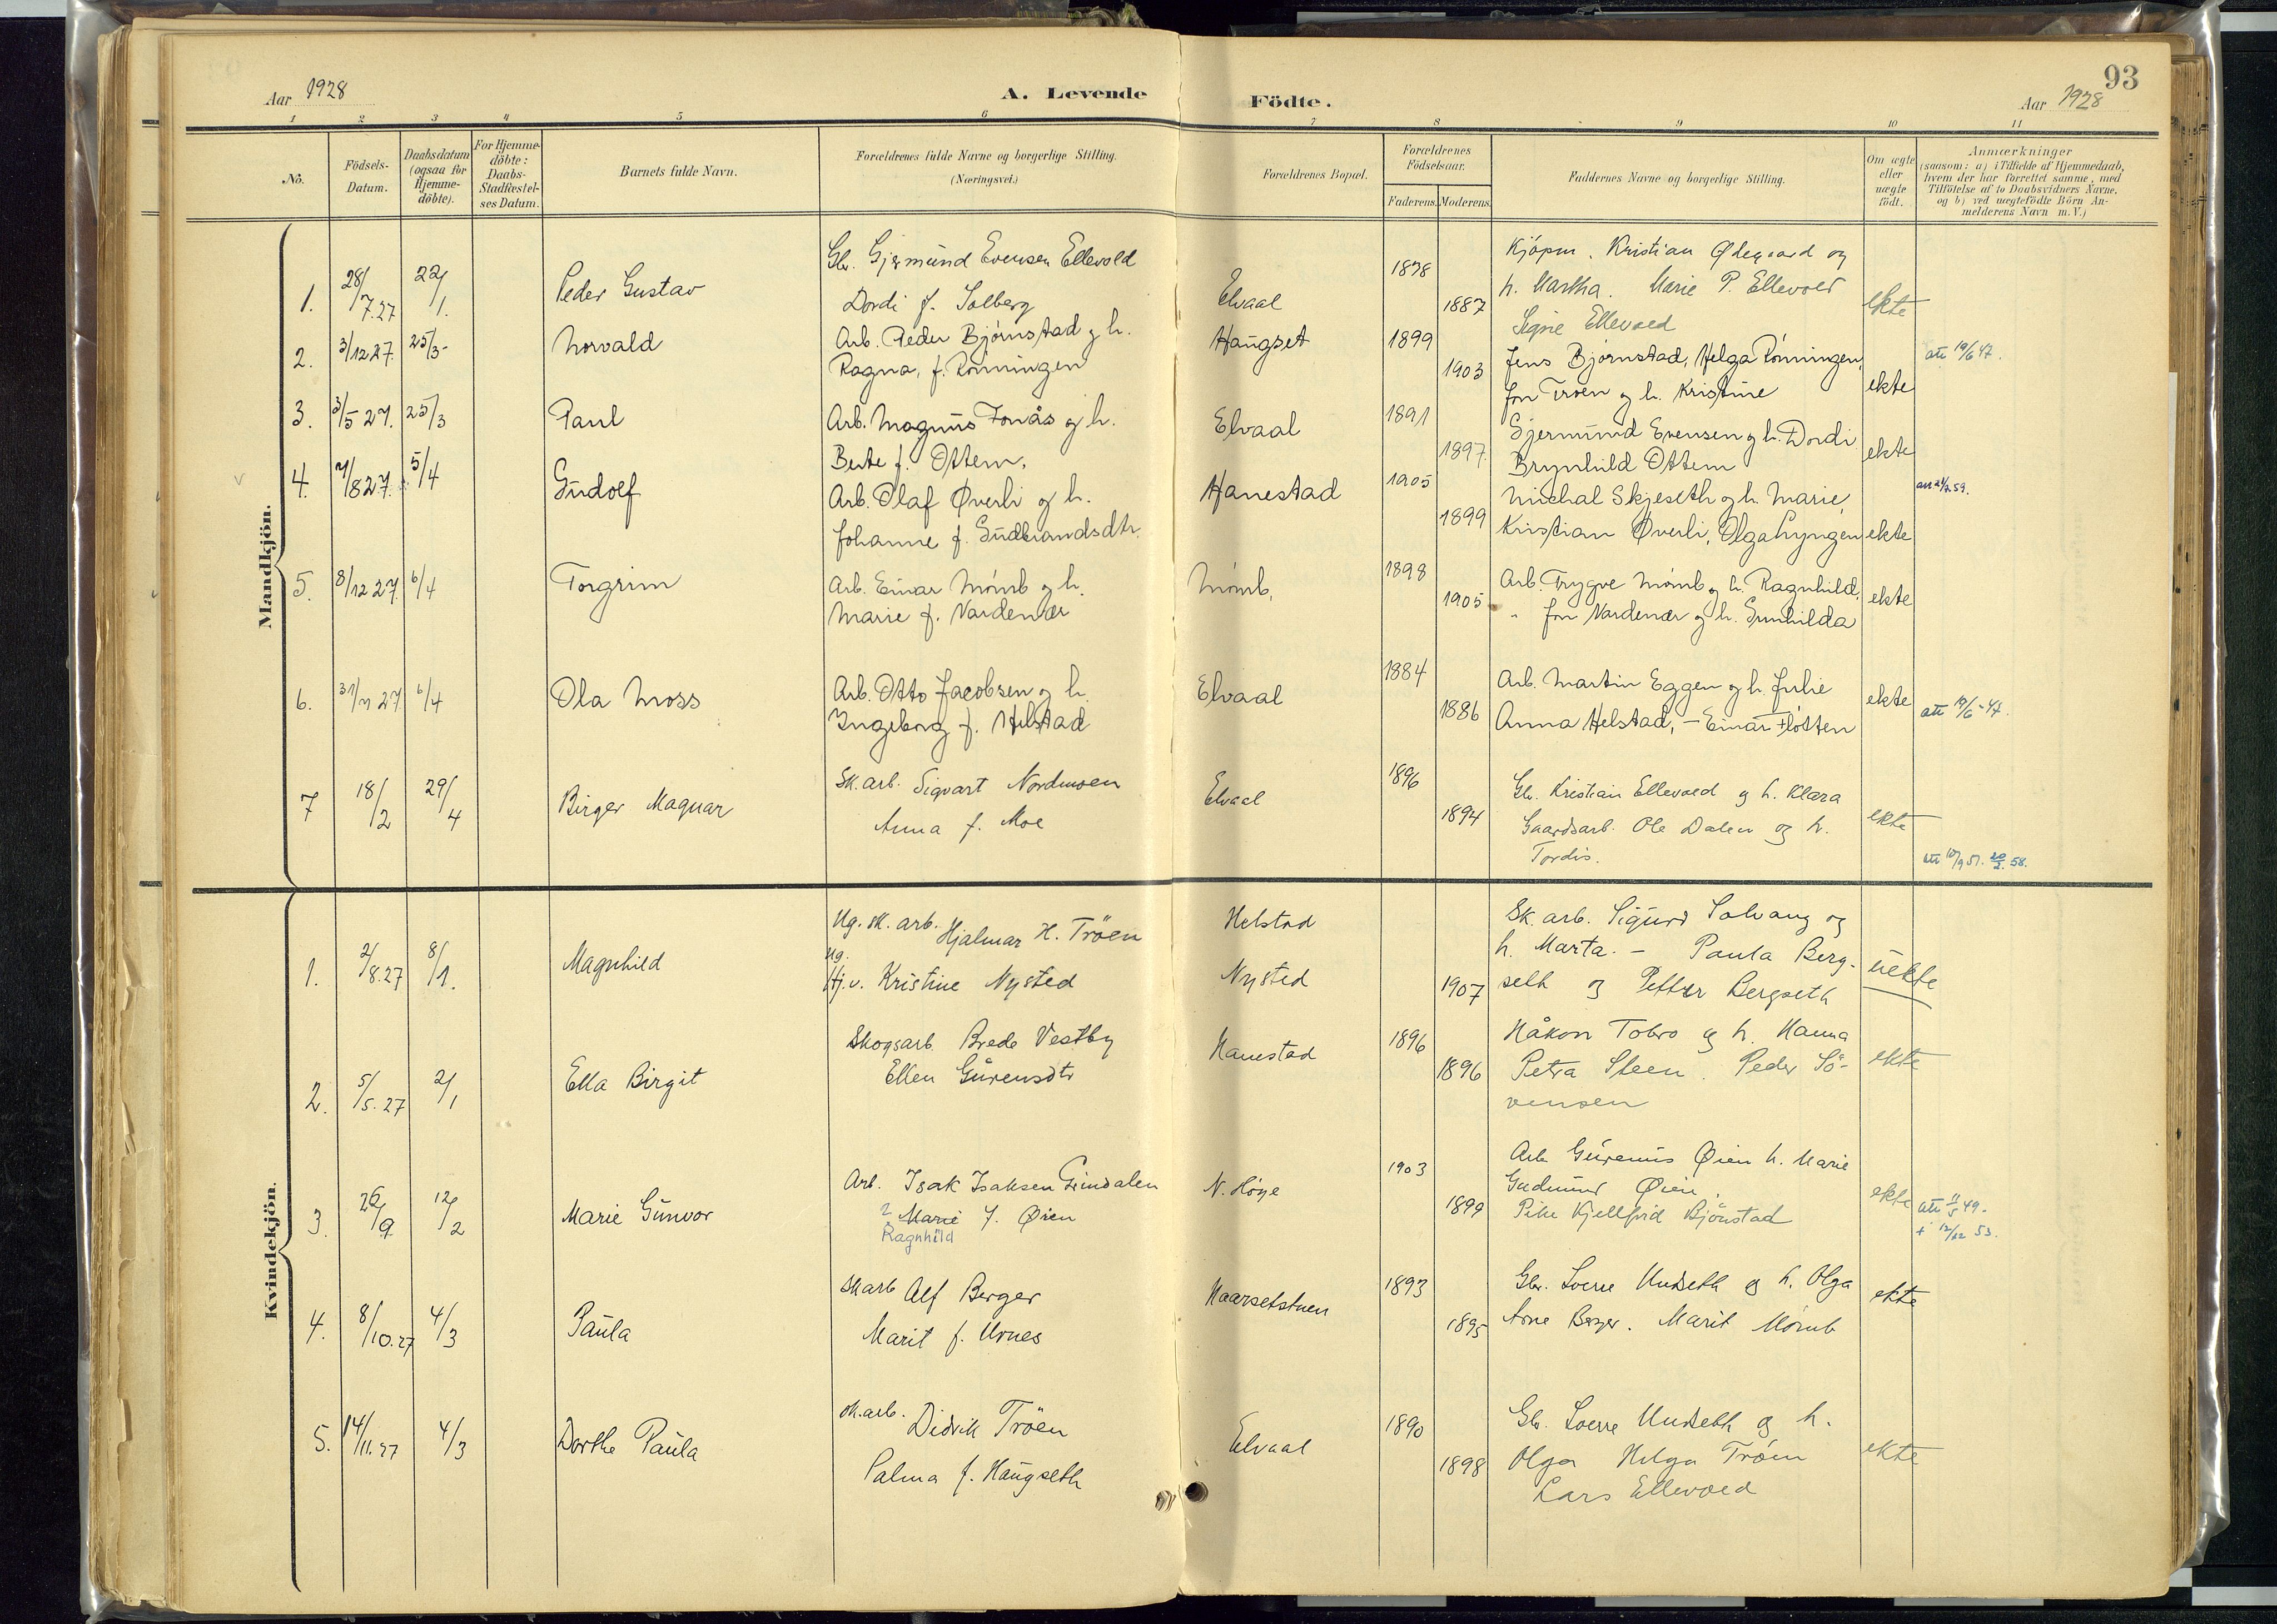 93
Aar 1928
A. Levende Födte.
Aar 1928
1 2 3 4 5 6 7 8 9 10 11
No.
Födsels-Datum.
Daabsdatum (ogsaa for Hjemme-döbte).
For Hjemme-döbte: Daabs-Stadfæstel-ses Datum.
Barnets fulde Navn.
Forældrenes fulde Navne og borgerlige Stilling.
(Næringsvei.)
Forældrenes Bopæl.
Forældrenes Födselsaar.
Faderens. Moderens.
Faddernes Navne og borgerlige Stilling.
Om ægte eller uægte födt.
Anmærkninger
(saasom: a) i Tilfælde af Hjemmedaab,
hvem der har forrettet samme, med
Tilföielse af to Daabsvidners Navne,
og b) ved uægtefödte Börn An-
melderens Navn m. V.)
Mandkjön.
1. 28/7.27 22/1. Peder Gustav
Gbr. Gjermund Evensen Ellevold
Dordi f. Solberg
Elvaal 1878 1887
Kjöpm. Kristian Ødegaard og
h. Martha. Marie P. Ellevold
Signe Ellevold
ekte
2. 3/12 27. 25/3 Thorvald
Arb. Peder Bjórnstad og h.
Ragna, f. Rönningen
Haugset 1899 1903
Jens Bjórnstad, Helga Rónningen,
Jon Troen og h. Kristine
ekte
att 19/6 47.
3. 3/5 27. 25/3 Paul
Arb. Magnus Tonås og h.
Berte f. Ottem.
Elvaal 1891 1897
Gjermund Evensen og h. Dordi
Brynhild Ottem
ekte
4. 7/8 27. 5/4 Gudolf
Arb. Olaf Øverli og h.
Johanne f. Gudbrandsdtr.
Hanestad 1905 1899
Michal Skjeseth og h. Marie,
Kristian Øverli, Olga Lyngen
ekte
5. 8/12 27. 6/4 Torgrim
Arb. Einar Mómb og h.
Marie f. Vardenær
Mómb, 1898 1905
Arb. Trygve Mómb og h. Ragnhild,
" Jon Vardenær og h. Gunhilda
ekte
6. 6/4 Ola Moss
Arb. Otto Jacobsen og h.
Ingeborg f. Helstad
Elvaal 1884 1886
Arb. Martin Eggen og h. Julie
Anna Helstad, – Einar Flótten
ekte
7 18/2 29/4 Birger Magnar
Sk. arb. Sigvart Nordmoen
Anna f. Moe
Elvaal 1896 1894
Gbr. Kristian Ellevold og h. Klara
Gaardsarb. Ole Dalen og h.
Tordis.
ekte
Kvindekjön.
1. 2/8.27 8/1. Magnhild
Ug. sk. arb. Hjalmar H. Tröen
Ug. Hj.v. Kristine Nysted
Helstad
Nysted 1907
Sk. arb. Sigurd Solvang og
h. Marta. – Paula Berg-
seth og Petter Bergseth
uekte
2. 5/5.27 2/1 Ella Birgit
Skogsarb. Brede Vestby
Ellen Gúrensdtr
Hanestad 1896 1896
Håkon Tobro og h. Hanna
Petra Steen. Peder Sö-
rensen
ekte
3. 26/9 12/2 Marie Gunvor
Arb. Isak Isaksen Grindalen
2 Marie f. Øien
Ragnhild
N. Höye 1903 1899
Arb. Gurenius Øien h. Marie
Gudmund Øien,
Pike Kjellfrid Bjönstad
ekte
+ 12/12 53.
4. 8/10.27 4/3 Paula
Skarb Alf Berger
Marit f. Urnes
Haarsetstuen 1893 1895
Gbr. Sverre Undseth og h. Olga
Arne Berger. Marit Mómb
ekte
5. 14/11.27 4/3 Dorthe Paula
sk. arb. Didrik Tröen
Palma f. Haugseth
Elvaal 1890 1898
Gbr. Sverre Undseth og h.
Olga Helga Tröen
Lars Ellevold
ekte